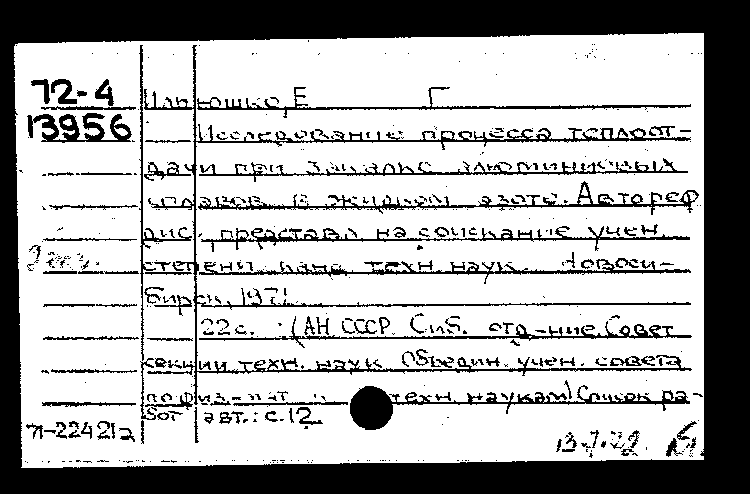 72-4
13956
Ильюшко, Е Г
Исследование процесса теплоот-
дачи при закалке алюминиевых
сплавов в жидком азоте. Автореф
дис., представл на соискание учен.
2 экз.
степени канд техн. наук. Новоси-
бирск, 1971
22 с. (АН СССР. Сиб. отд-ние. Совет
секции техн. наук Объедин. учен. совета
по физ.-мат и техн. наукам) Список ра-
бот авт.: с.12.
71-22421а
13.7.72.